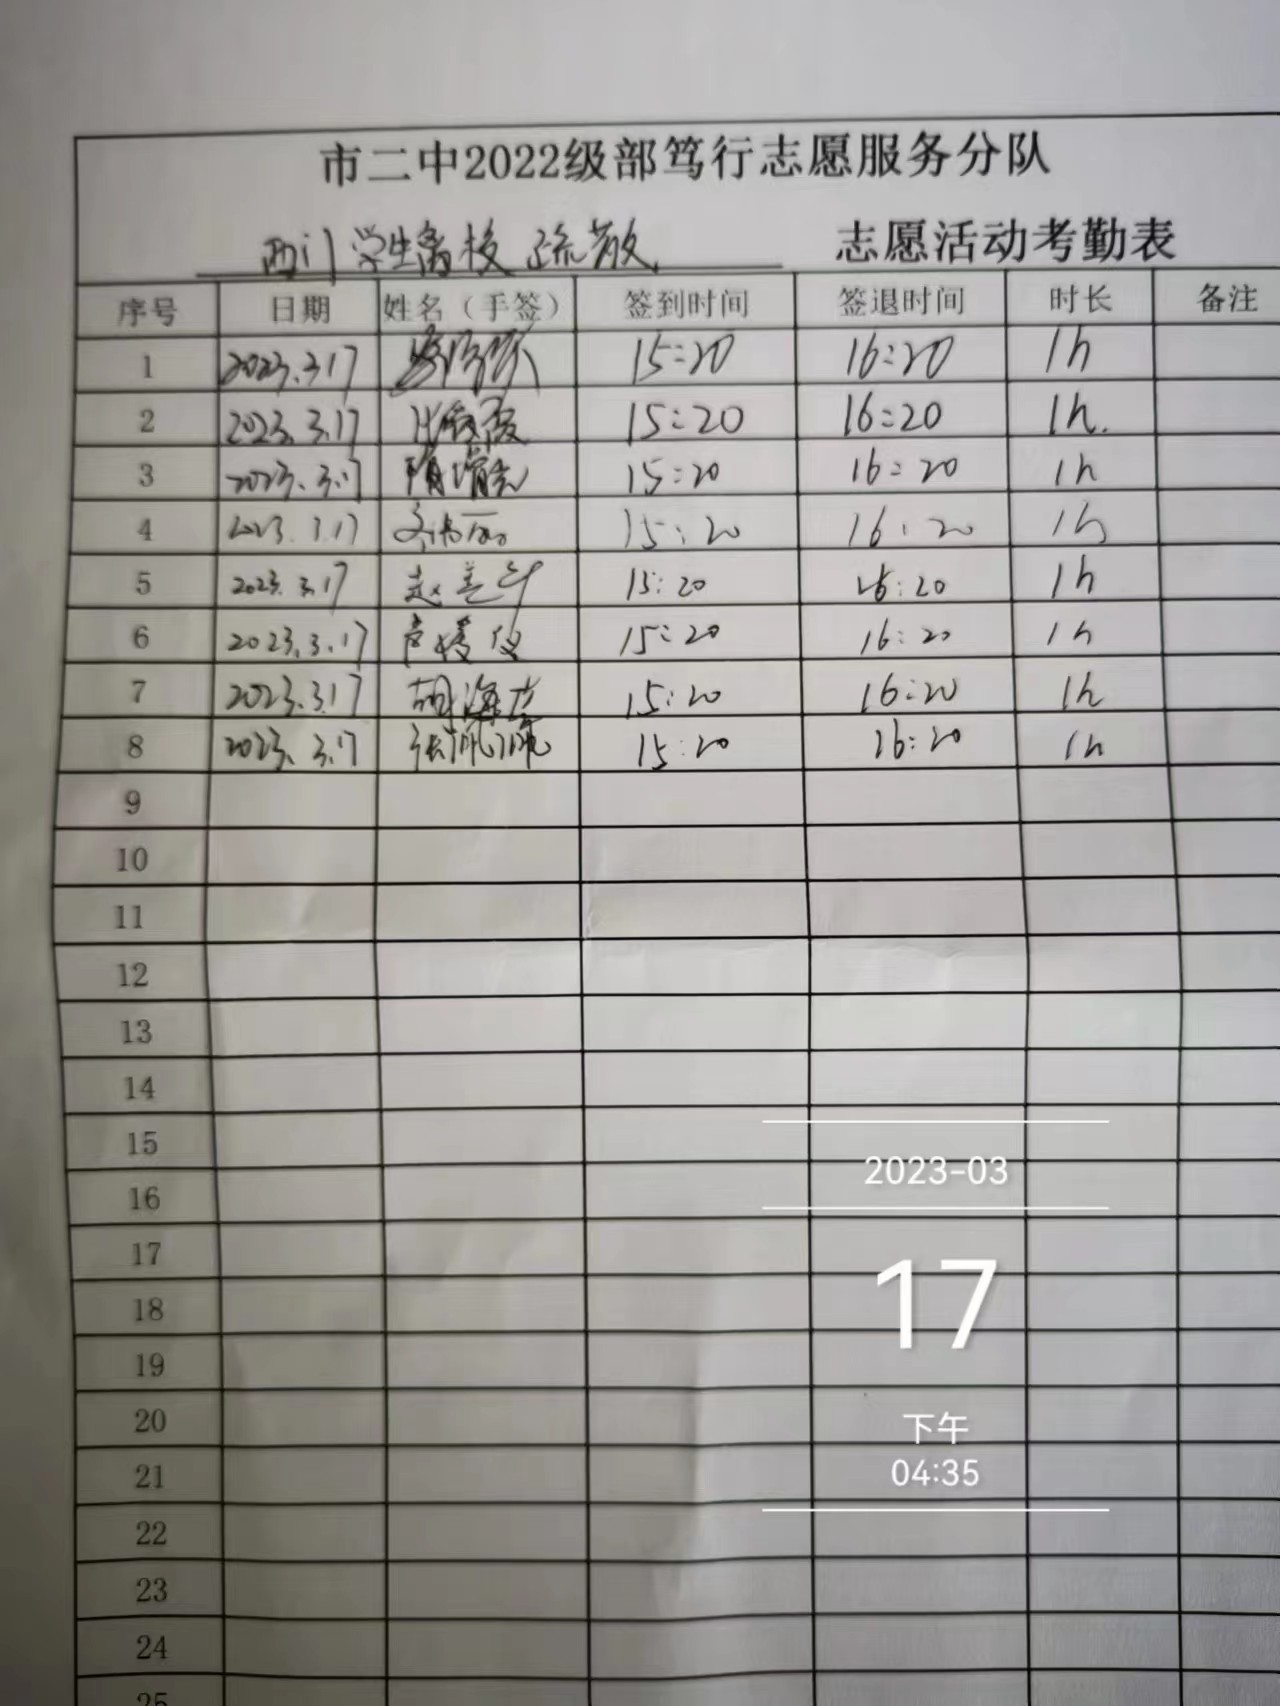 市二中2022级部笃行志愿服务分队
西门学生离校疏散 志愿活动考勤表
序号 日期 姓名（手签） 签到时间 签退时间 时长 备注
1 2023.3.17 15:20 16:20 1h
2 2023.3.17 15:20 16:20 1h.
3 2023.3.17 15:20 16:20 1h
4 2023.3.17 15:20 16:20 1h
5 2023.3.17 15:20 16:20 1h
6 2023.3.17 卢媛仪 15:20 16:20 1h
7 2023.3.17 15:20 16:20 1h
8 2023.3.17 张佩佩 15:20 16:20 1h
9
10
11
12
13
14
15
16
17
18
19
20
21
22
23
24
25
2023-03
17
下午
04:35